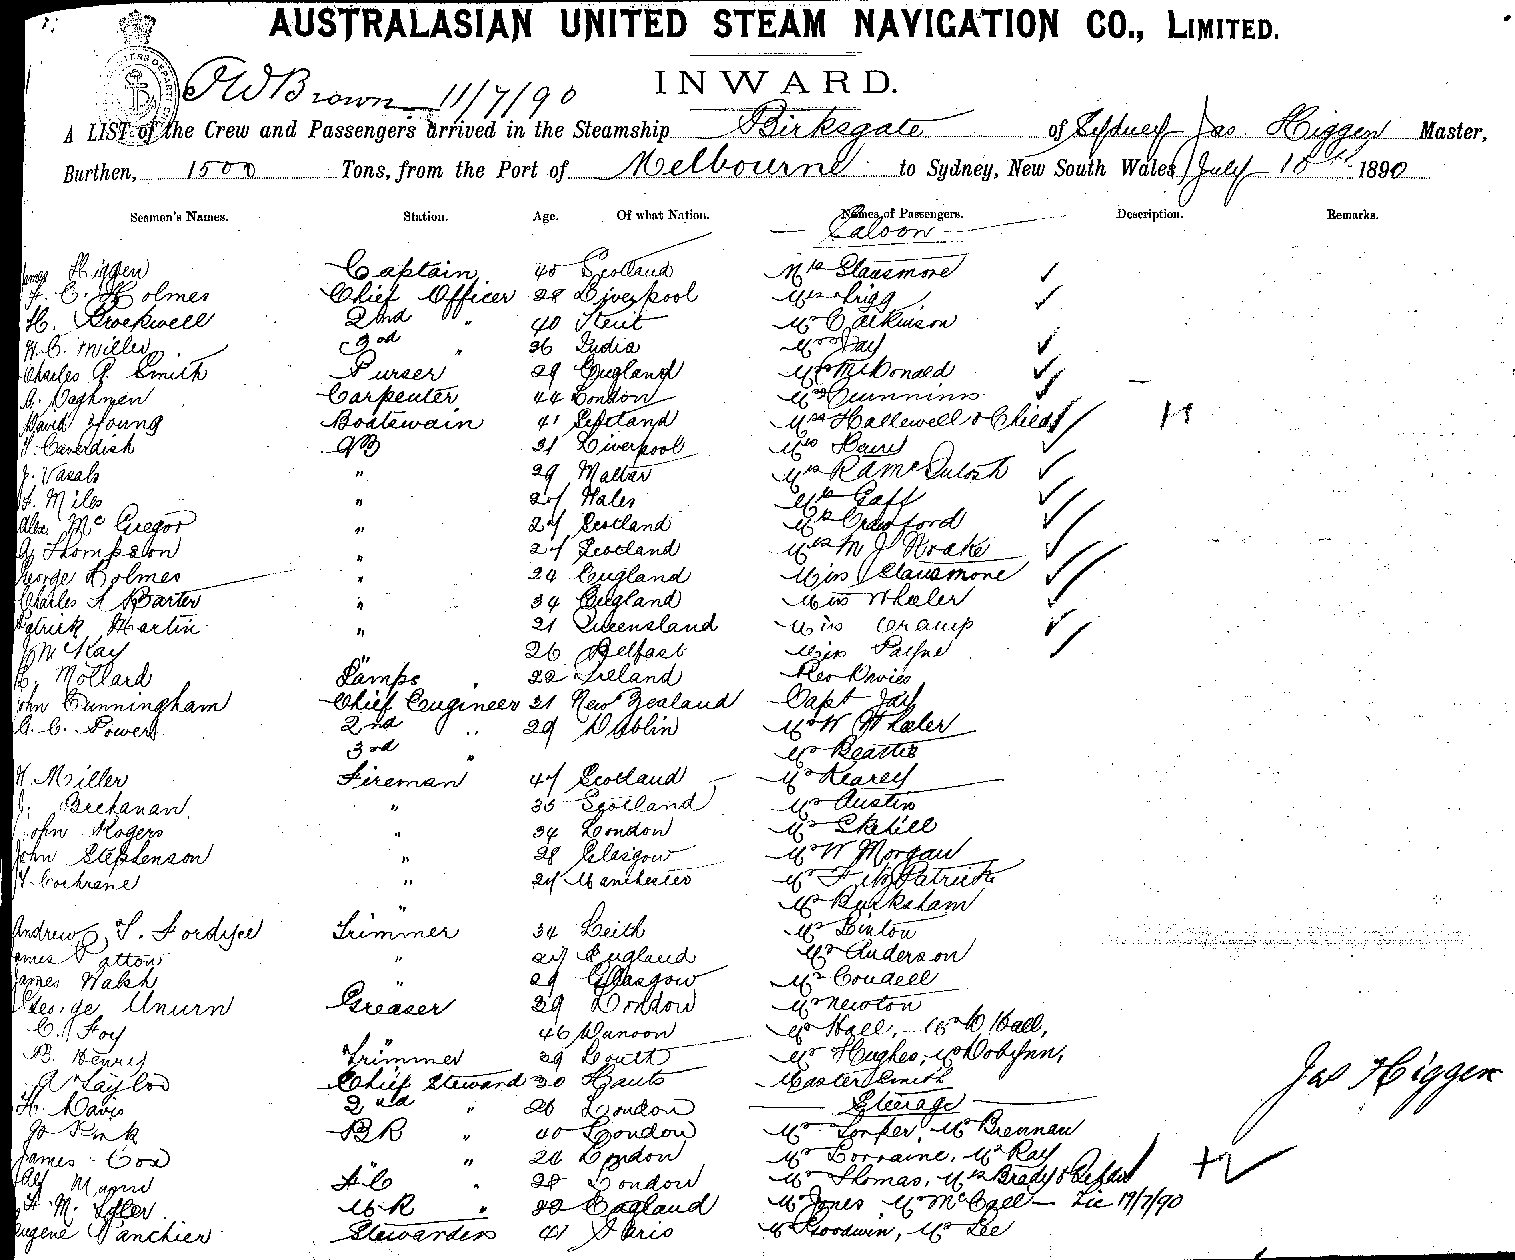 AUSTRALASIAN UNITED STEAM NAVIGATION CO., LIMITED.
INWARD.
Brown 11/7/90
A LIST of the Crew and Passengers arrived in the Steamship Birksgate of Sydney Jas Higgen Master,
Burthen, 1500 Tons, from the Port of Melbourne to Sydney, New South Wales, July 10th 1890
Seamen's Names. Station. Age. Of what Nation. Names of Passengers. Description. Remarks.
Saloon
James Higgen Captain 40 Scotland Mrs Glansmore
Holmes Chief Officer 28 Liverpool Mrs Trigg
H. Brockwell 2nd " 40 Kent Mr C Atkinson
W. C. Miller 3rd " 36 India Mrs Jay
Charles Smith Purser 29 England McDonald
Carpenter 44 London
David Young Boatswain 41 Mrs Hallewell & Child
Cavendish AB 31 Liverpool Mrs
J. Vasals " 29 Maltar Mrs R A McIntosh
Miles " 27 Wales Mrs Gaff
Alex. McGregor " 27 Scotland Mrs Crawford
A Thompson " 27 Scotland Mrs M J Roake
George Holmes " 24 England Miss Glansmore
Charles A Barter " 34 England Miss Wheeler
Patrick Martin " 21 Queensland Miss
McKay " 26 Belfast Miss Payne
Mollard Lamps 22 Ireland Rev Davies
John Cunningham Chief Engineer 31 New Zealand Capt Jay
A. C. Power 2nd " 29 Dublin Mr W Wheeler
3rd " Mr Beattie
Miller Fireman 47 Scotland Mr Kearey
J. Buchanan " 35 Scotland Mr Austin
John Rogers " 34 London Mr
John Stephenson " 28 Glasgow Mr W Morgan
Cochrane " 27 Manchester Mr FitzPatrick
" Mr
Andrew T. Fordyce Trimmer 34 Leith Mr Linton
James Patton " 27 England Mr Anderson
James Walsh " 29 Glasgow Mr
George Unurn Greaser 39 London Mr Newton
C. Foy " 46 Dunoon Mr Hall, Hall,
B. Henry Trimmer 39 Louth Mr Hughes, Mr
A Taylor Chief Steward 30 Hants Master Smith
H. Davis 2nd " 26 London Steerage
Jo Pink BR " 40 London Mr Mr Brennan
James Cox " 24 London Mr Lorraine, Mr Ray
" 28 London Mr Thomas, Mrs Brady
M. " England Mr Jones Mr McCall
Eugene Panchier Stewardess 41 Paris Mr Goodwin, Mr Lee
Jas Higgen